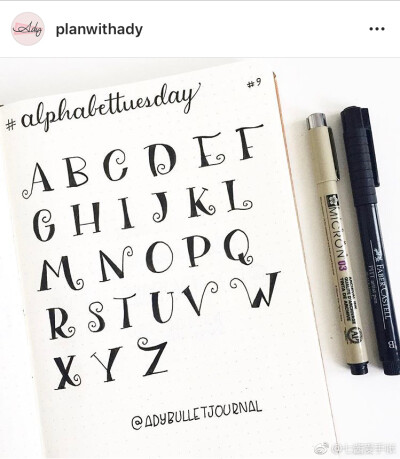 Ady
planwithady
#alphabettuesday
#9
A B C D E F
G H I J K L
M N O P Q
R S T U V W
X Y Z
@ADYBULLETJOURNAL
MICRON 03
FABER-CASTELL